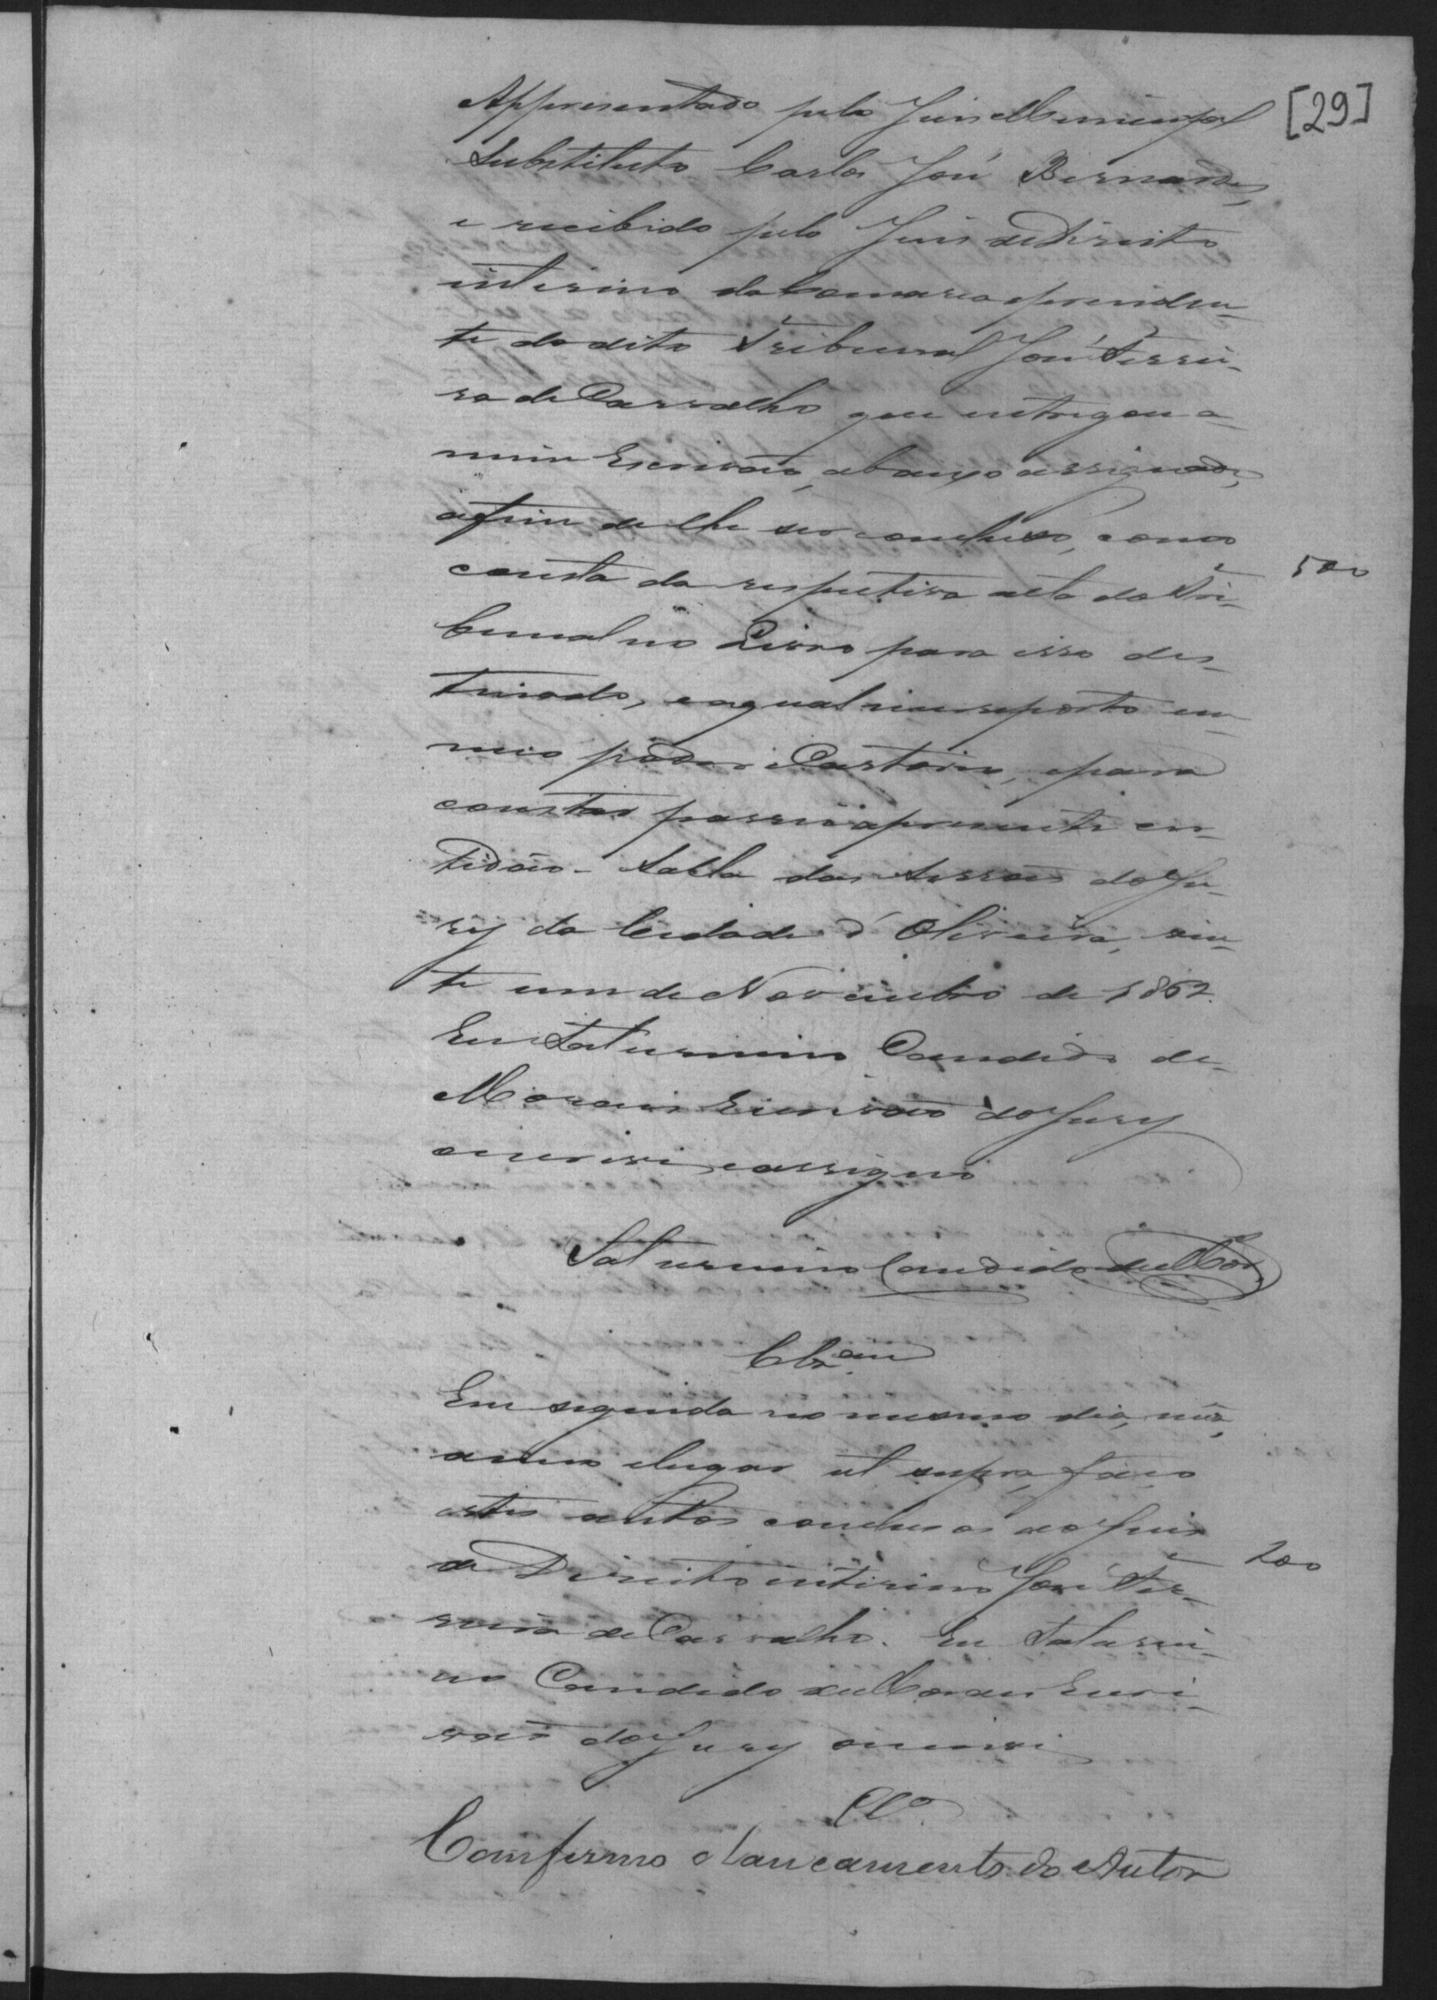 [29]
Appresentado pelo Juis Municipal
Substituto Carlos José Bernardes,
e recibido pelo Juis de Direito
interino da Comarca e preziden-
te do dito Tribunal José Ferrei-
ra de Carvalho que entregou a
mim Escrivão, abaixo assignado,
afim de lhe ser concluso, como
consta da respectiva acta do Tri- 500
bunal no Livro para isso des-
tinado, e aqual me reporto em
meo poder e Cartorio, e para
constar passei a presente cer-
tidão. Salla das Sessões do Ju-
ry da Cidade d'Oliveira, vin-
te um de Novembro de 1862.
Eu Saturnino Candido de
Moraes Escrivão do Jury
o escrevi e assignei
Saturnino Candido de Mor.
Clz.am
Em seguida no mesmo dia, mês,
anno e lugar ut supra, faço
estes autos conclusos ao Juis
de Direito interino José Fer- 200
reira de Carvalho. Eu Saturni-
no Candido de Moraes Escri-
vão do Jury o escrevi
Cl.o
Comfirmo o lancamento do Autor